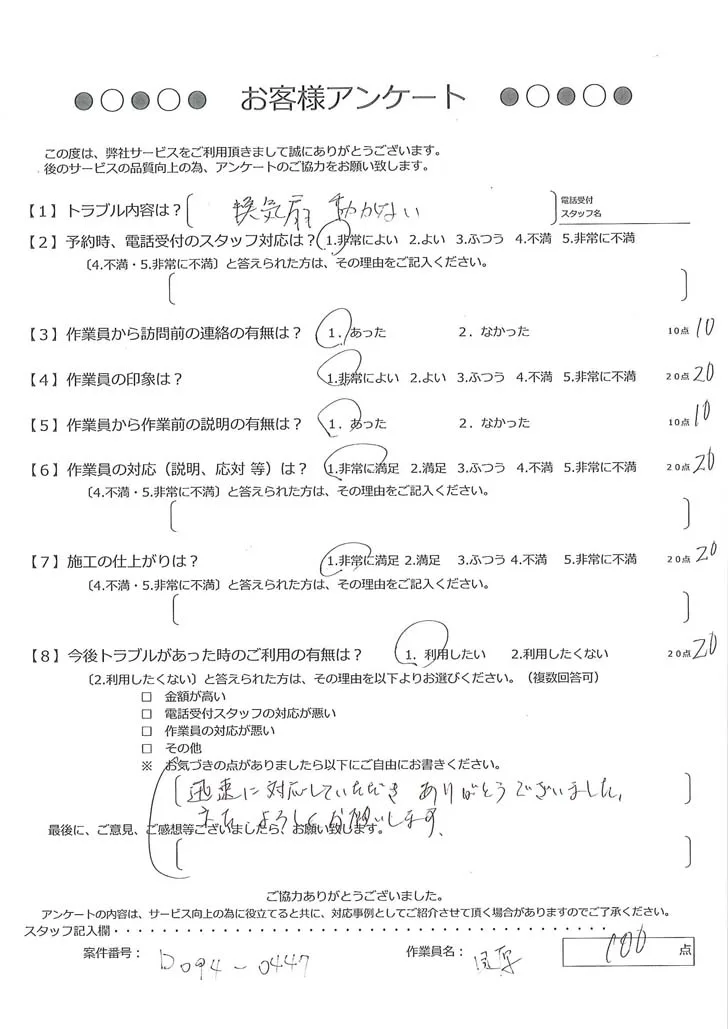 ●○●○● お客様アンケート ●○●○●
この度は、弊社サービスをご利用頂きまして誠にありがとうございます。
後のサービスの品質向上の為、アンケートのご協力をお願い致します。
【1】トラブル内容は? 換気扇 動かない 電話受付
スタッフ名
【2】予約時、電話受付のスタッフ対応は? 1.非常によい 2.よい 3.ふつう 4.不満 5.非常に不満
〔4.不満・5.非常に不満〕と答えられた方は、その理由をご記入ください。
【3】作業員から訪問前の連絡の有無は? 1．あった 2．なかった 10点 10
【4】作業員の印象は? 1.非常によい 2.よい 3.ふつう 4.不満 5.非常に不満 20点 20
【5】作業員から作業前の説明の有無は? 1．あった 2．なかった 10点 10
【6】作業員の対応（説明、応対 等）は? 1.非常に満足 2.満足 3.ふつう 4.不満 5.非常に不満 20点 20
〔4.不満・5.非常に不満〕と答えられた方は、その理由をご記入ください。
【7】施工の仕上がりは? 1.非常に満足 2.満足 3.ふつう 4.不満 5.非常に不満 20点 20
〔4.不満・5.非常に不満〕と答えられた方は、その理由をご記入ください。
【8】今後トラブルがあった時のご利用の有無は? 1．利用したい 2.利用したくない 20点 20
〔2.利用したくない〕と答えられた方は、その理由を以下よりお選びください。（複数回答可）
□ 金額が高い
□ 電話受付スタッフの対応が悪い
□ 作業員の対応が悪い
□ その他
※ お気づきの点がありましたら以下にご自由にお書きください。
迅速に対応していただき ありがとうございました。
また よろしくお願いします。
最後に、ご意見、ご感想等ございましたら、お願い致します。
ご協力ありがとうございました。
アンケートの内容は、サービス向上の為に役立てると共に、対応事例としてご紹介させて頂く場合がありますのでご了承ください。
スタッフ記入欄・・・・・・・・・・・・・・・・・・・・・・・・・・・・・・・・・・・・・・・・
案件番号： D094-0447 作業員名： 100 点